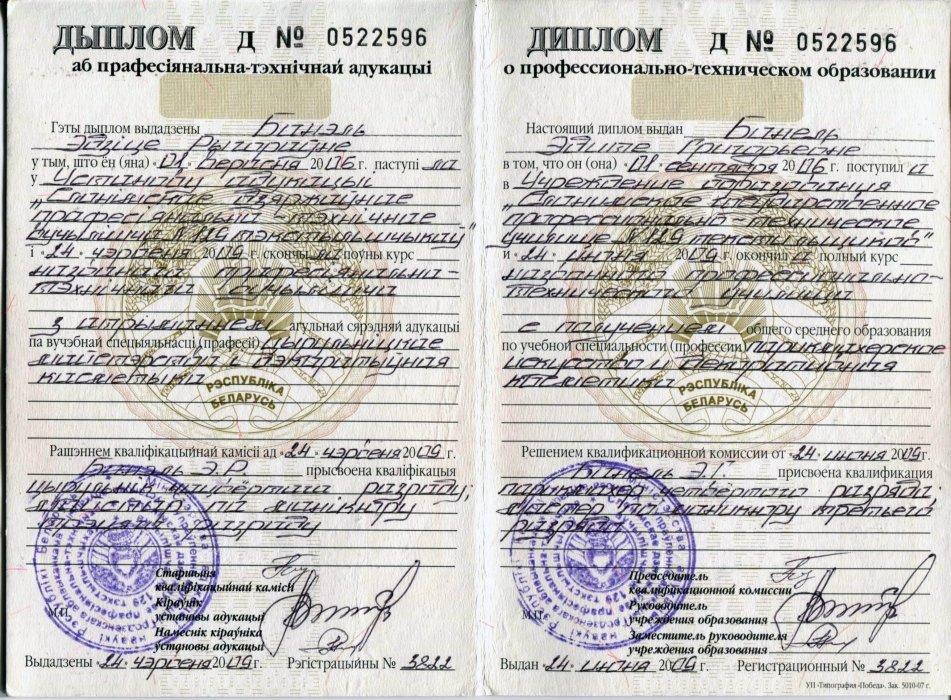 ДЫПЛОМ Д № 0522596
аб прафесіянальна-тэхнічнай адукацыі
Гэты дыплом выдадзены Бітнэль
Эдзіце Рыгораўне
у тым, што ён (яна) «01» верасня 2006 г. паступіла
у Установу адукацыі
„Слонімскае дзяржаўнае
прафесіянальна-тэхнічнае
вучылішча №129 тэкстыльшчыкаў"
і «24» чэрвеня 2009 г. скончыла поўны курс
названага прафесіянальна-
тэхнічнага вучылішча
з атрыманнем агульнай сярэдняй адукацыі
па вучэбнай спецыяльнасці (прафесіі) цырульніцкае
майстэрства і дэкаратыўная
касметыка
РЭСПУБЛІКА
БЕЛАРУСЬ
Рашэннем кваліфікацыйнай камісіі ад «24» чэрвеня 2009 г.
Бітнэль Э.Р. прысвоена кваліфікацыя
цырульнік чацвёртага разраду;
майстар па манікюру
трэцяга разраду
Старшыня
кваліфікацыйнай камісіі
Кіраўнік
установы адукацыі
Намеснік кіраўніка
установы адукацыі
М.П.
Выдадзены «24» чэрвеня 2009 г. Рэгістрацыйны № 3822
ДИПЛОМ Д № 0522596
о профессионально-техническом образовании
Настоящий диплом выдан Битнель
Эдите Григорьевне
в том, что он (она) «01» сентября 2006 г. поступила
в Учреждение образования
„Слонимское государственное
профессионально-техническое
училище №129 текстильщиков"
и «24» июня 2009 г. окончила полный курс
названного профессионально-
технического училища
с получением общего среднего образования
по учебной специальности (профессии) парикмахерское
искусство и декоративная
косметика
РЭСПУБЛІКА
БЕЛАРУСЬ
Решением квалификационной комиссии от «24» июня 2009 г.
Битнель Э.Г. присвоена квалификация
парикмахер четвёртого разряда;
мастер по маникюру третьего
разряда
Председатель
квалификационной комиссии
Руководитель
учреждения образования
Заместитель руководителя
учреждения образования
М.П.
Выдан «24» июня 2009 г. Регистрационный № 3822
УП «Типография «Победа». Зак. 5010-07 г.